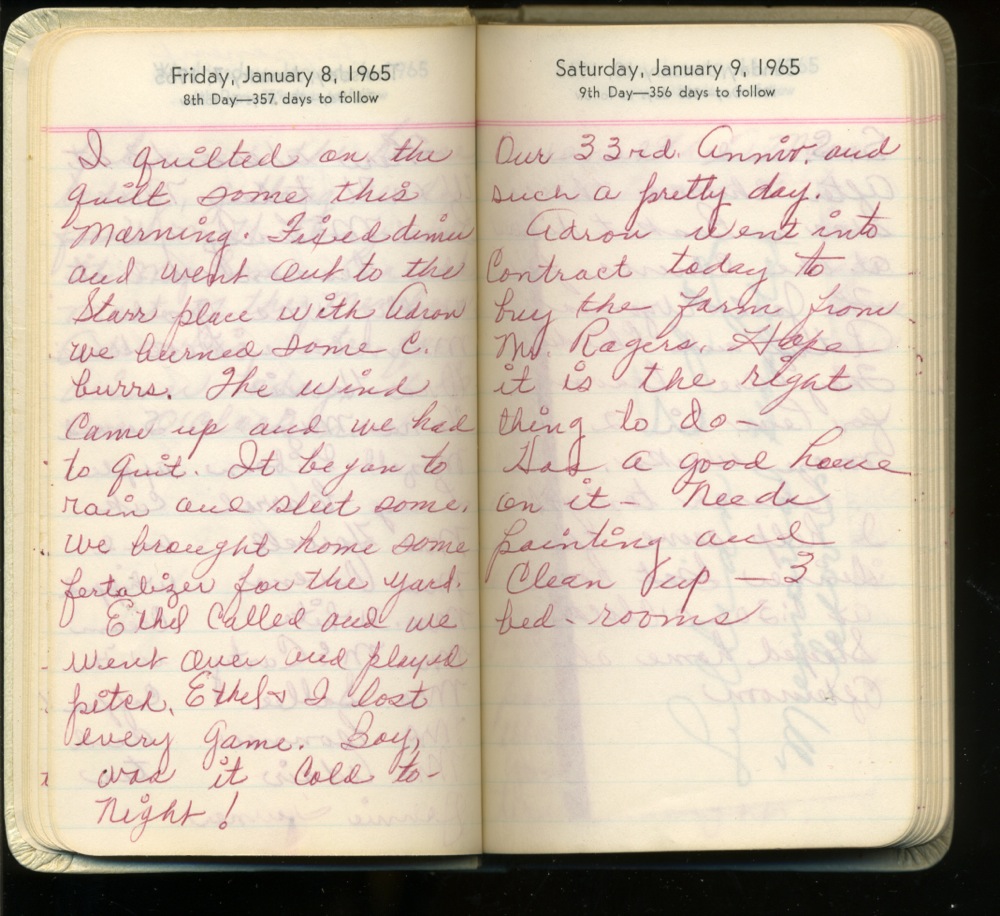 Friday, January 8, 1965
8th Day—357 days to follow
I quilted on the
quilt some this
morning. Fixed dinner
and went out to the
Starr place with Adron
we burned some C.
burrs. The wind
came up and we had
to quit. It began to
rain and sleet some.
we brought home some
fertalizer for the yard.
Ethel called and we
went over and played
pitch. Ethel & I lost
every game. Boy,
was it cold to-
night!
Saturday, January 9, 1965
9th Day—356 days to follow
Our 33rd. Anniv. and
such a pretty day.
Adron went into
Contract today to
buy the farm from
Mr. Ragers. Hope
it is the right
thing to do—
Has a good house
on it— needs
painting and
clean up — 3
bed-rooms